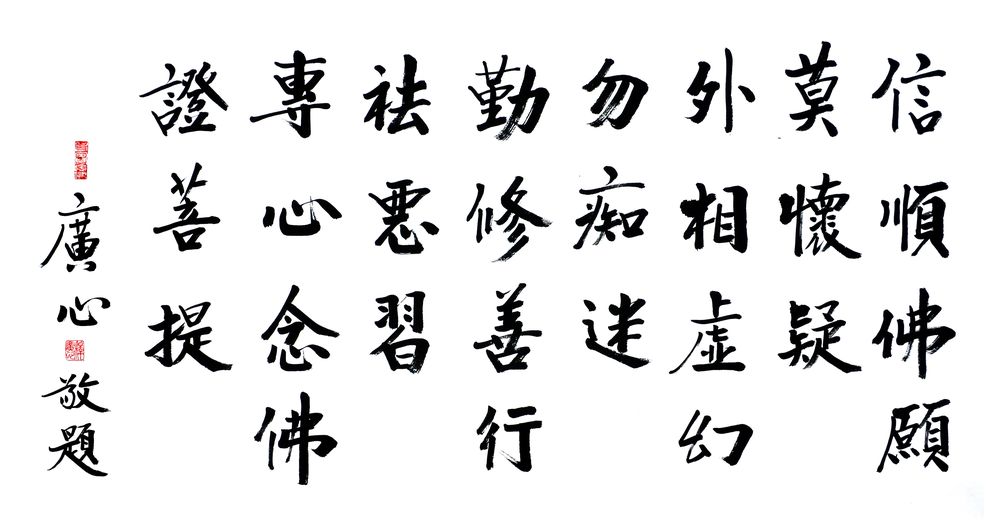 信順佛願
莫懷疑
外相虛幻
勿痴迷
勤修善行
祛惡習
專心念佛
證菩提
廣心敬題